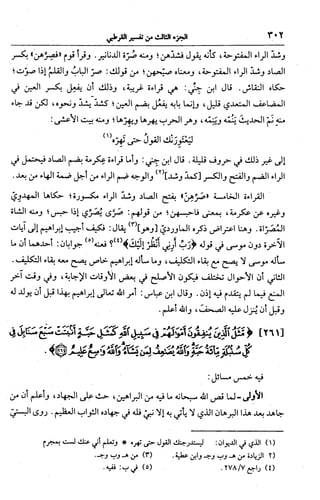 ٣٠٢ الجزء الثالث من تفسير القرطبي
وشدّ الراء المفتوحة، كأنه يقول فشدّهن؛ ومنه صُرّة الدنانير. وقرأ قوم «فصِرّهن» بكسر
الصاد وشدّ الراء المفتوحة، ومعناه صيّحهن؛ من قولك: صرّ البابُ والقلمُ إذا صوّت؛
حكاه النقاش. قال ابن جني: هي قراءة غريبة، وذلك أن يفعِل بكسر العين في
المضاعف المتعدي قليل، وإنما بابه يفعُل بضم العين؛ كشدّ يشُد ونحوه، لكن قد جاء
منه نَمّ الحديثَ يَنُمّه ويَنِمّه، وهر الحرب يهرها ويهِرها؛ ومنه بيت الأعشى:
ليَعْتَوِرَنْك القولُ حتى تَهِرّه (١)
إلى غير ذلك في حروف قليلة. قال ابن جني: وأما قراءة عِكرمة بضم الصاد فيحتمل في
الراء الضم والفتح والكسر [كمدّ وشدّ] (٢) والوجه ضم الراء من أجل ضمة الهاء من بعد.
القراءة الخامسة «صَرِّهن» بفتح الصاد وشدّ الراء مكسورة؛ حكاها المهدويّ
وغيره عن عكرمة، بمعنى فاحبسهن؛ من قولهم: صَرّى يُصَرّي إذا حبس؛ ومنه الشاة
المُصَرّاة. وهنا اعتراض ذكره الماورديّ [وهو] (٣) يقال: فكيف أجيب إبراهيم إلى آيات
الآخرة دون موسى في قوله ﴿رَبِّ أَرِنِي أَنْظُرْ إِلَيْكَ﴾ (٤)؟ فعنه (٥) جوابان: أحدهما أن ما
سأله موسى لا يصح مع بقاء التكليف، وما سأله إبراهيم خاص يصح معه بقاء التكليف.
الثاني أن الأحوال تختلف فيكون الأصلح في بعض الأوقات الإجابة، وفي وقت آخر
المنع فيما لم يتقدم فيه إذن. وقال ابن عباس: أمر الله تعالى إبراهيم بهذا قبل أن يولد له
وقبل أن يُنزل عليه الصحف، والله أعلم.
[٢٦١] ﴿مَّثَلُ الَّذِينَ يُنفِقُونَ أَمْوَالَهُمْ فِي سَبِيلِ اللَّهِ كَمَثَلِ حَبَّةٍ أَنبَتَتْ سَبْعَ سَنَابِلَ فِي
كُلِّ سُنبُلَةٍ مِّائَةُ حَبَّةٍ وَاللَّهُ يُضَاعِفُ لِمَن يَشَاءُ وَاللَّهُ وَاسِعٌ عَلِيمٌ﴾
فيه خمس مسائل:
الأولى ـ لما قص الله سبحانه ما فيه من البراهين، حث على الجهاد، وأعلم أن من
جاهد بعد هذا البرهان الذي لا يأتي به إلا نبيّ فله في جهاده الثواب العظيم. روى البستي
(١) الذي في الديوان: ليستدرجنك القول حتى تهره * وتعلم أني عنك لست بمجرم
(٢) الزيادة من هـ وب وجـ وابن عطية. (٣) من هـ وب وجـ.
(٤) راجع ٢٧٨/٧ (٥) في ب: ففيه.